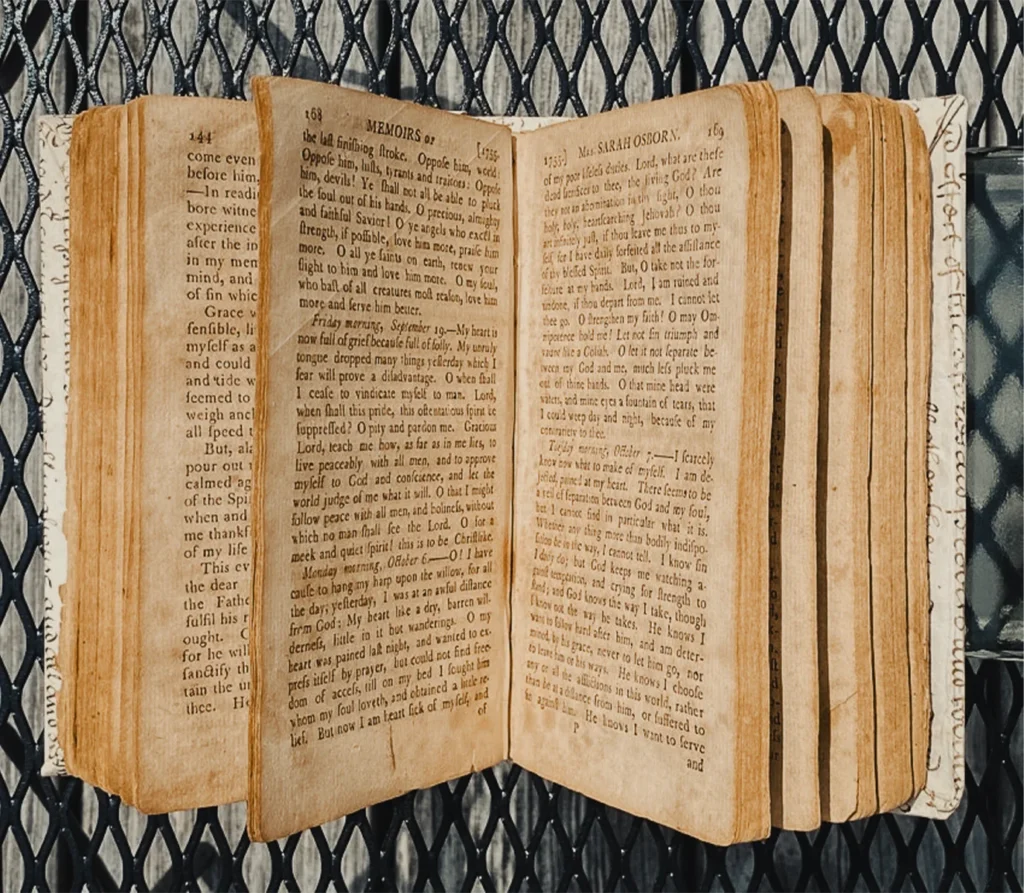 144
come even
before him,
—In readi
bore witne
experience
after the in
in my mem
mind, and
of ſin whic
Grace w
ſenſible, li
myſelf as a
and could
and tide w
ſeemed to
weigh anch
all ſpeed t
But, ala
pour out
calmed ag
of the Spi
when and
me thankf
of my life
This ev
the dear
the Fathe
fulfil his r
ought.
for he will
ſanctify th
tain the un
thee. He
168 MEMOIRS OF [1755.
the laſt finiſhing ſtroke. Oppoſe him, world:
Oppoſe him, luſts, tyrants and traitors: Oppoſe
him, devils! Ye ſhall not all be able to pluck
the ſoul out of his hands. O precious, almighty
and faithful Savior! O ye angels who excel in
ſtrength, if poſſible, love him more, praiſe him
more. O all ye ſaints on earth, renew your
flight to him and love him more. O my ſoul,
who haſt of all creatures moſt reaſon, love him
more and ſerve him better.
Friday morning, September 19.—My heart is
now full of grief becauſe full of folly. My unruly
tongue dropped many things yeſterday which I
fear will prove a diſadvantage. O when ſhall
I ceaſe to vindicate myſelf to man. Lord,
when ſhall this pride, this oſtentatious ſpirit be
ſuppreſſed? O pity and pardon me. Gracious
Lord, teach me how, as far as in me lies, to
live peaceably with all men, and to approve
myſelf to God and conſcience, and let the
world judge of me what it will. O that I might
follow peace with all men, and holineſs, without
which no man ſhall ſee the Lord. O for a
meek and quiet ſpirit! this is to be Chriſtlike.
Monday morning, October 6.—O! I have
cauſe to hang my harp upon the willow, for all
the day; yeſterday, I was at an awful diſtance
from God: My heart like a dry, barren wil-
derneſs, little in it but wanderings. O my
heart was pained laſt night, and wanted to ex-
preſs itſelf by prayer, but could not find free-
dom of acceſs, till on my bed I ſought him
whom my ſoul loveth, and obtained a little re-
lief. But now I am heart ſick of myſelf, and
of
1755.] Mrs. SARAH OSBORN. 169
of my poor lifeleſs duties. Lord, what are theſe
dead ſacrifices to thee, the living God? Are
they not an abomination in thy ſight. O thou
holy, holy, heartſearching Jehovah? O thou
art infinitely juſt, if thou leave me thus to my-
ſelf, for I have daily forfeited all the aſſiſtance
of thy bleſſed Spirit. But, O take not the for-
feiture at my hands. Lord, I am ruined and
undone, if thou depart from me. I cannot let
thee go. O ſtrengthen my faith! O may Om-
nipotence hold me! Let not ſin triumph and
vaunt like a Goliah. O let it not ſeparate be-
tween my God and me, much leſs pluck me
out of thine hands. O that mine head were
waters, and mine eyes a fountain of tears, that
I could weep day and night, becauſe of my
contrariety to thee.
Tueſday morning, October 7.—I ſcarcely
know now what to make of myſelf. I am de-
jected, pained at my heart. There ſeems to be
a veil of ſeparation between God and my ſoul,
but I cannot find in particular what it is.
Whether any thing more than bodily indiſpo-
ſition be in the way, I cannot tell. I know ſin
I daily do; but God keeps me watching a-
gainſt temptation, and crying for ſtrength to
ſtand; and God knows the way I take, though
I know not the way he takes. He knows I
want to follow hard after him, and am deter-
mined, by his grace, never to let him go, nor
to leave him or his ways. He knows I chooſe
any or all the afflictions in this world, rather
than be at a diſtance from him, or ſuffered to
ſin againſt him. He knows I want to ſerve
P
and